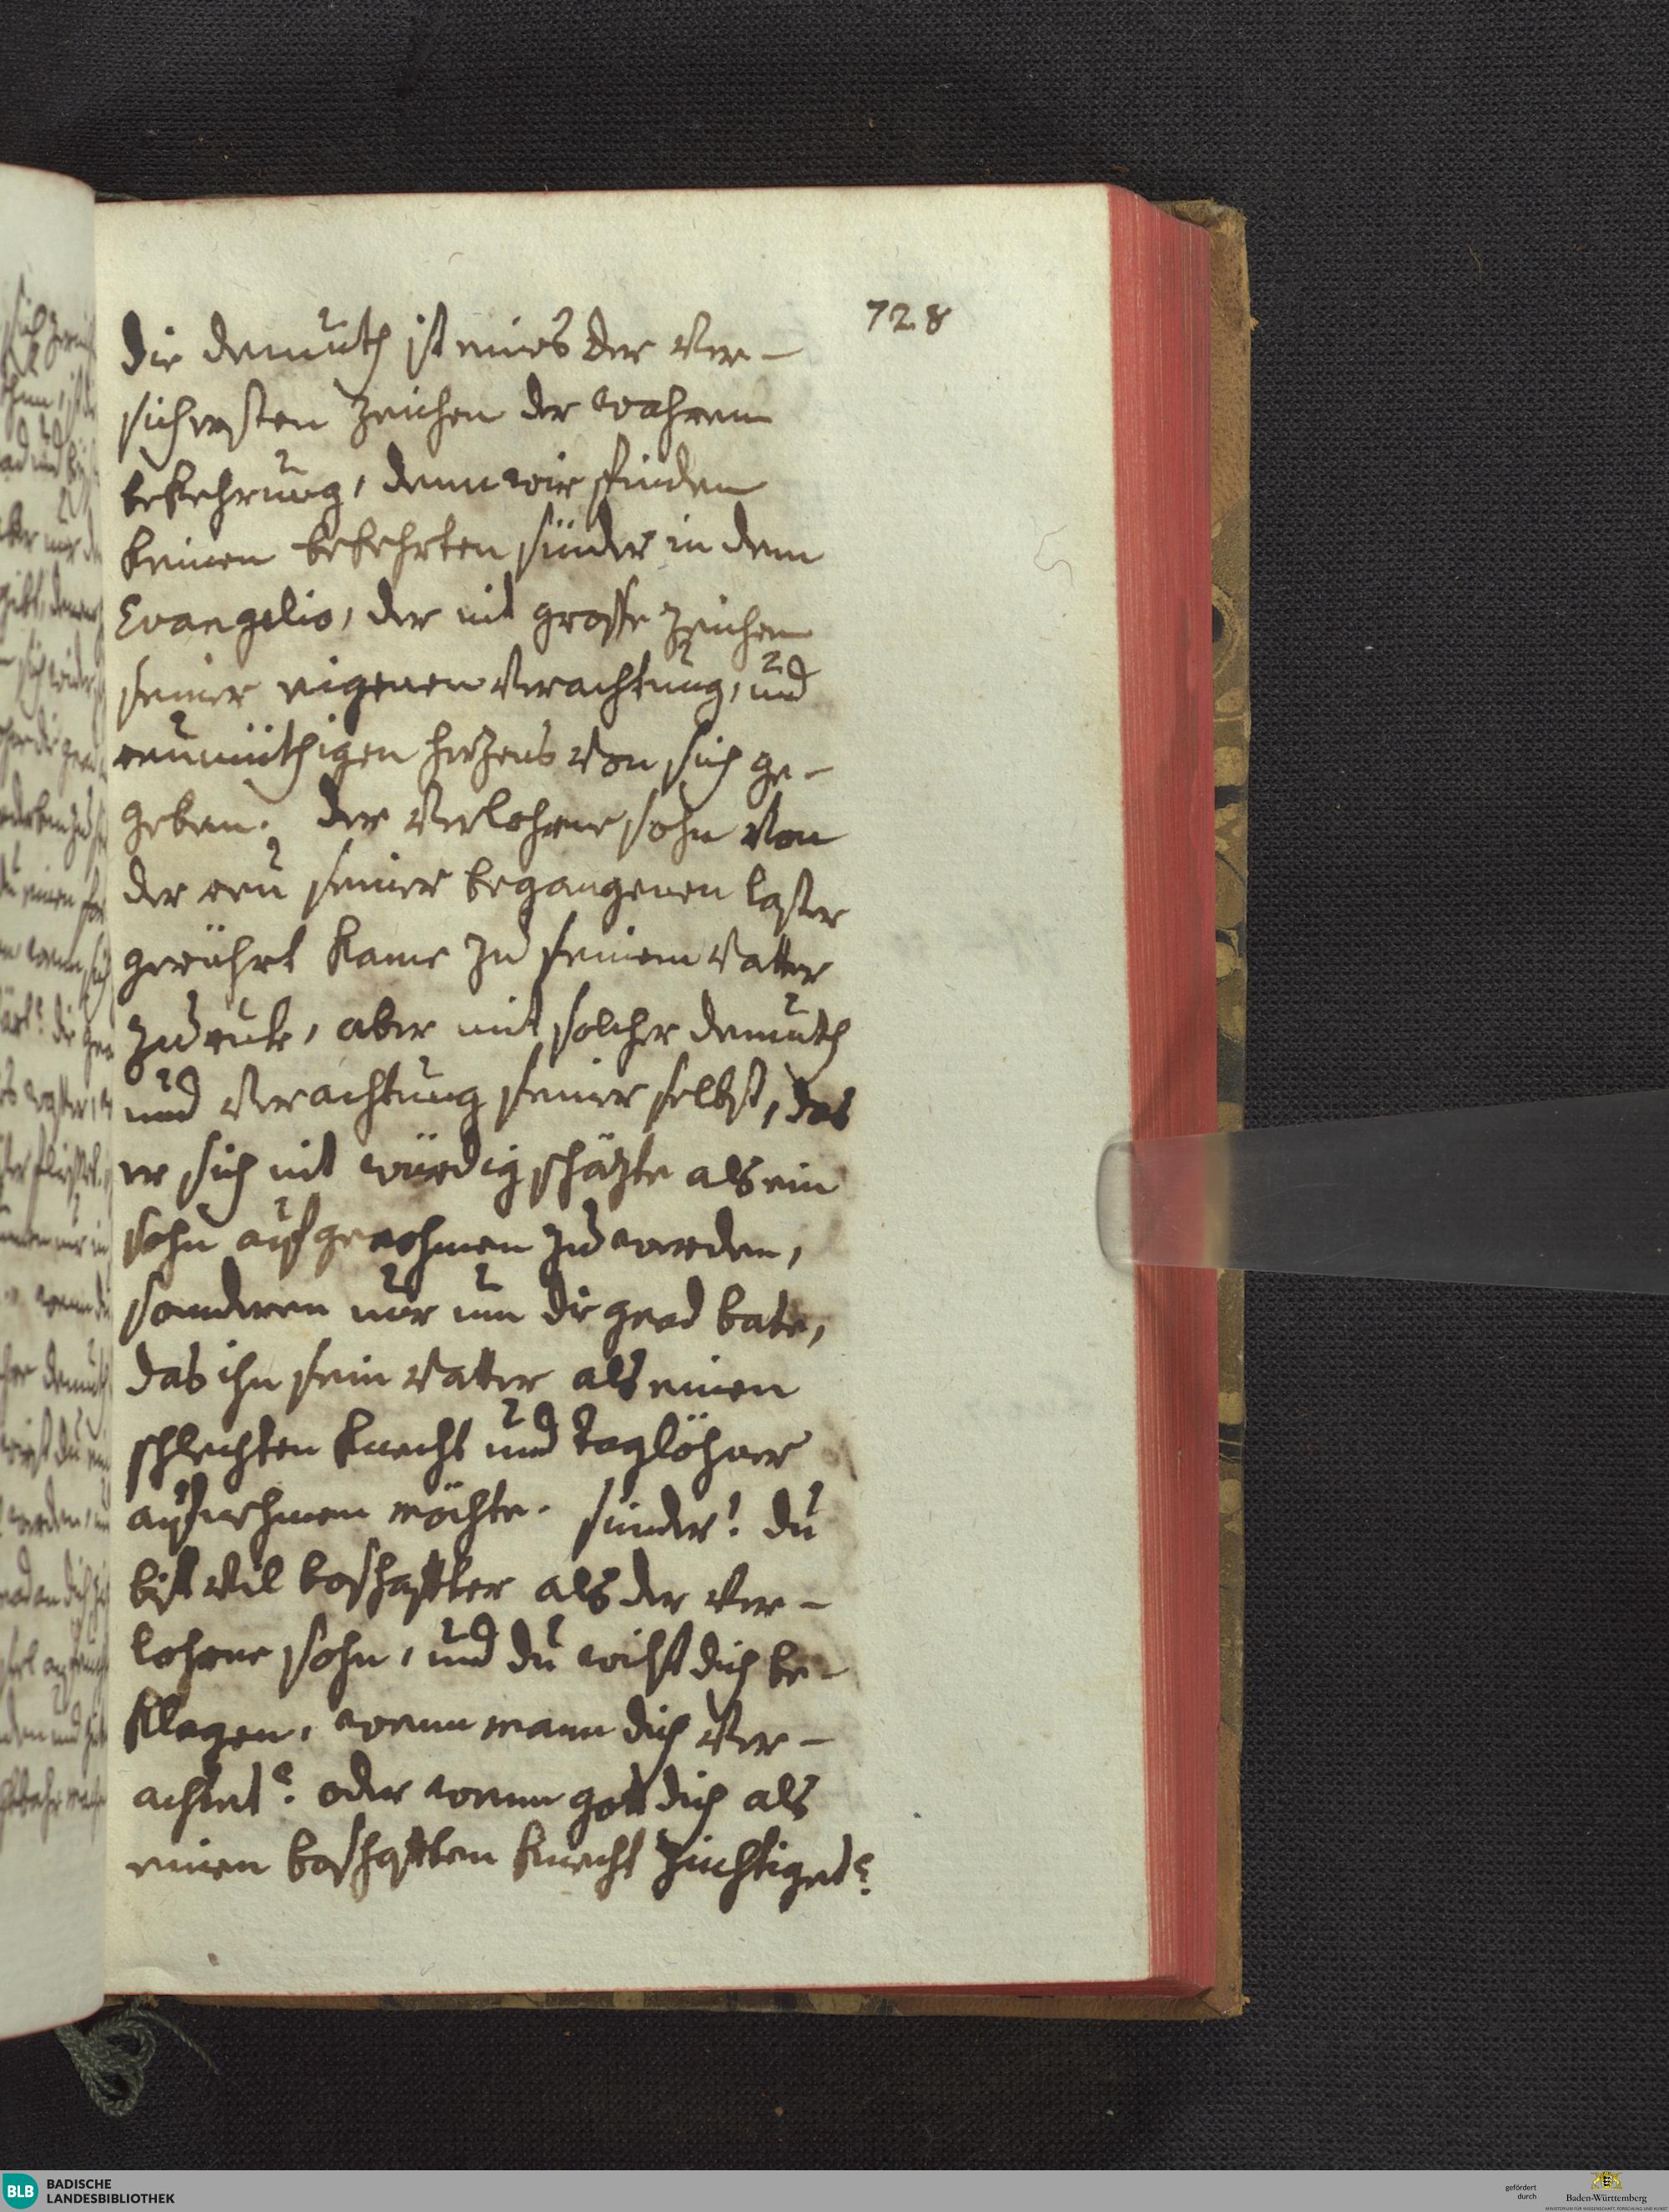 728
die demuth ist eines der ver-
sichresten zeichen der wahren
bekehrung, denn wir finden
keinen bekehrten sünder in dem
Evangelio, der nit grosse zeichen
seiner eigenen verachtung, und
reumüthigen herzens von sich ge-
geben. der verlohrne sohn von
der reu seiner begangenen laster
gerührt kame zu seinem vatter
zuruk, aber mit solcher demuth
und verachtung seiner selbst, das
er sich nit würdig schäzte als ein
sohn aufgenohmen zu werden,
sonderen nur um die gnad bate,
das ihn sein vatter als einen
schlechten knecht und taglöhner
aufnehmen möchte. sünder! du
bist vil boshaffter als der ver-
lohrne sohn, und du wilst dich be-
klagen, wenn mann dich ver-
achtet? oder wenn gott dich als
einen boshafften knecht züchtiget?
BLB BADISCHE
LANDESBIBLIOTHEK
gefördert
durch
Baden-Württemberg
MINISTERIUM FÜR WISSENSCHAFT, FORSCHUNG UND KUNST